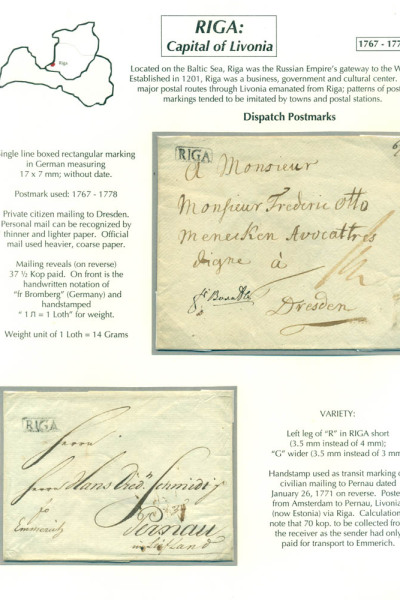 RIGA:
Capital of Livonia
1767 - 177
Riga
Located on the Baltic Sea, Riga was the Russian Empire's gateway to the W
Established in 1201, Riga was a business, government and cultural center.
major postal routes through Livonia emanated from Riga; patterns of post
markings tended to be imitated by towns and postal stations.
Dispatch Postmarks
ingle line boxed rectangular marking
in German measuring
17 x 7 mm; without date.
Postmark used: 1767 - 1778
Private citizen mailing to Dresden.
Personal mail can be recognized by
thinner and lighter paper. Official
mail used heavier, coarse paper.
Mailing reveals (on reverse)
37 ½ Kop paid. On front is the
handwritten notation of
"fr Bromberg" (Germany) and
handstamped
" 1 Л = 1 Loth" for weight.
Weight unit of 1 Loth = 14 Grams
RIGA
à Monsieur
Monsieur Frederic Otto
Menecken Avocat très
digne à
Dresden
RIGA
Herrn
Herrn Hans Died. Schmidt
Pernau
in Liefland
fr
Emmerich
VARIETY:
Left leg of "R" in RIGA short
(3.5 mm instead of 4 mm);
"G" wider (3.5 mm instead of 3 mm
Handstamp used as transit marking o
civilian mailing to Pernau dated
January 26, 1771 on reverse. Poste
from Amsterdam to Pernau, Livonia
(now Estonia) via Riga. Calculation
note that 70 kop. to be collected fro
the receiver as the sender had only
paid for transport to Emmerich.